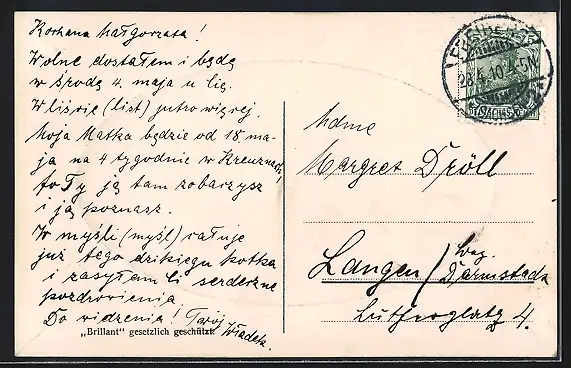 Kochana Małgorzata!
Wolne dostałem i będę
w środę 4. maja u Cię.
W liście (list) jutro więcej.
Moja Matka będzie od 18. ma-
ja na 4 tygodnie w Kreuznach!
to Ty ją tam zobaczysz
i ją poznasz.
W myśli (myśl) całuje
już tego dzikiego kotka
i zasyłam Ci serdeczne
pozdrowienia.
Do widzenia! Twój
Władek.
„Brillant“ gesetzlich geschützt.
FREIBERG
28.4.10. 4-5N
(SACHSEN)
Mdme
Margret Dröll
Langen / bez.
Darmstadt
Lutherplatz 4.